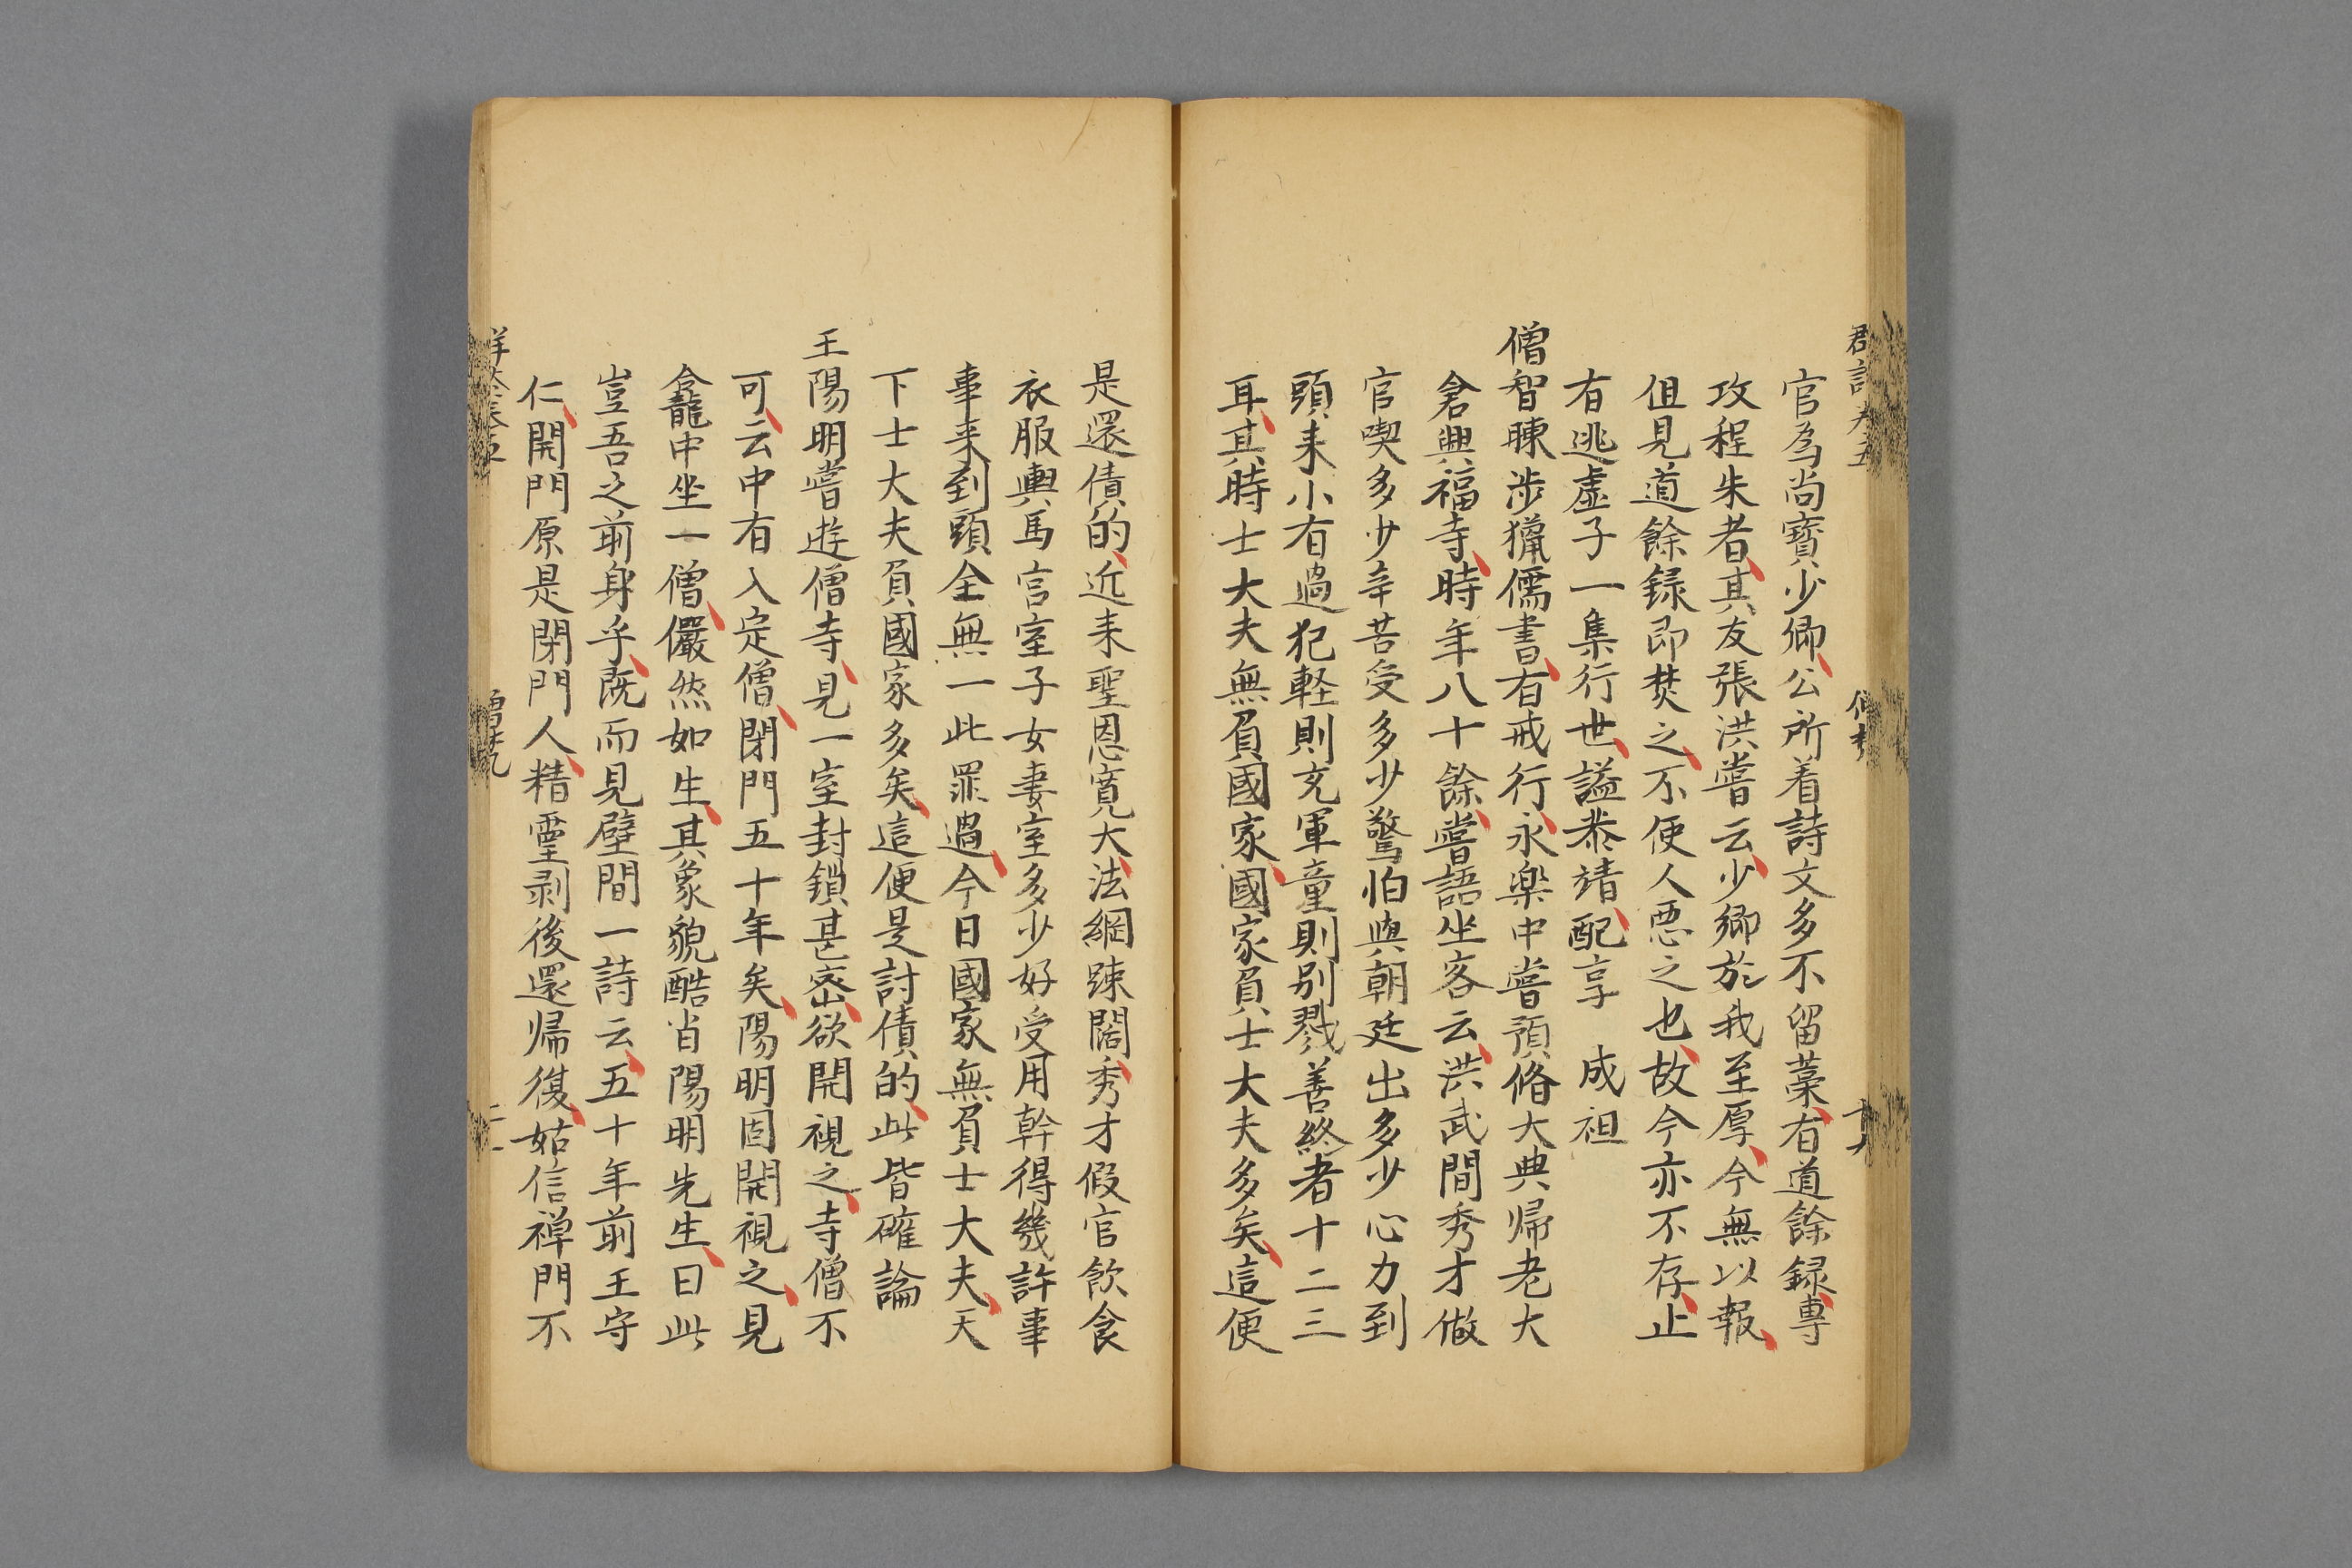 官為尚寳少卿公所着詩文多不留藁有道餘録專
攻程朱者其友張洪嘗云少卿於我至厚今無以報
但見道餘録即焚之不便人惡之也故今亦不存止
有逃虛子一集行世謚恭靖配享 成祖
僧智暕涉獵儒書有戒行永樂中嘗預脩大典帰老大
倉興福寺時年八十餘嘗語坐客云洪武間秀才做
官喫多少辛苦受多少驚怕與朝廷出多少心力到
頭来小有過犯軽則充軍重則别戮善終者十二三
耳其時士大夫無負國家國家負士大夫多矣這便
是還債的近来聖恩寛大法網踈闊秀才假官飲食
衣服輿馬宫室子女妻室多少好受用幹得幾許事
事来到頭全無一此罪過今日國家無負士大夫天
下士大夫負國家多矣這便是討債的此皆確論
王陽明嘗遊僧寺見一室封鎖甚密欲開視之寺僧不
可云中有入定僧閉門五十年矣陽明固開視之見
龕中坐一僧儼然如生其象貌酷肖陽明先生曰此
豈吾之前身乎既而見壁間一詩云五十年前王守
仁開門原是閉門人精靈剥後還帰復始信禅門不